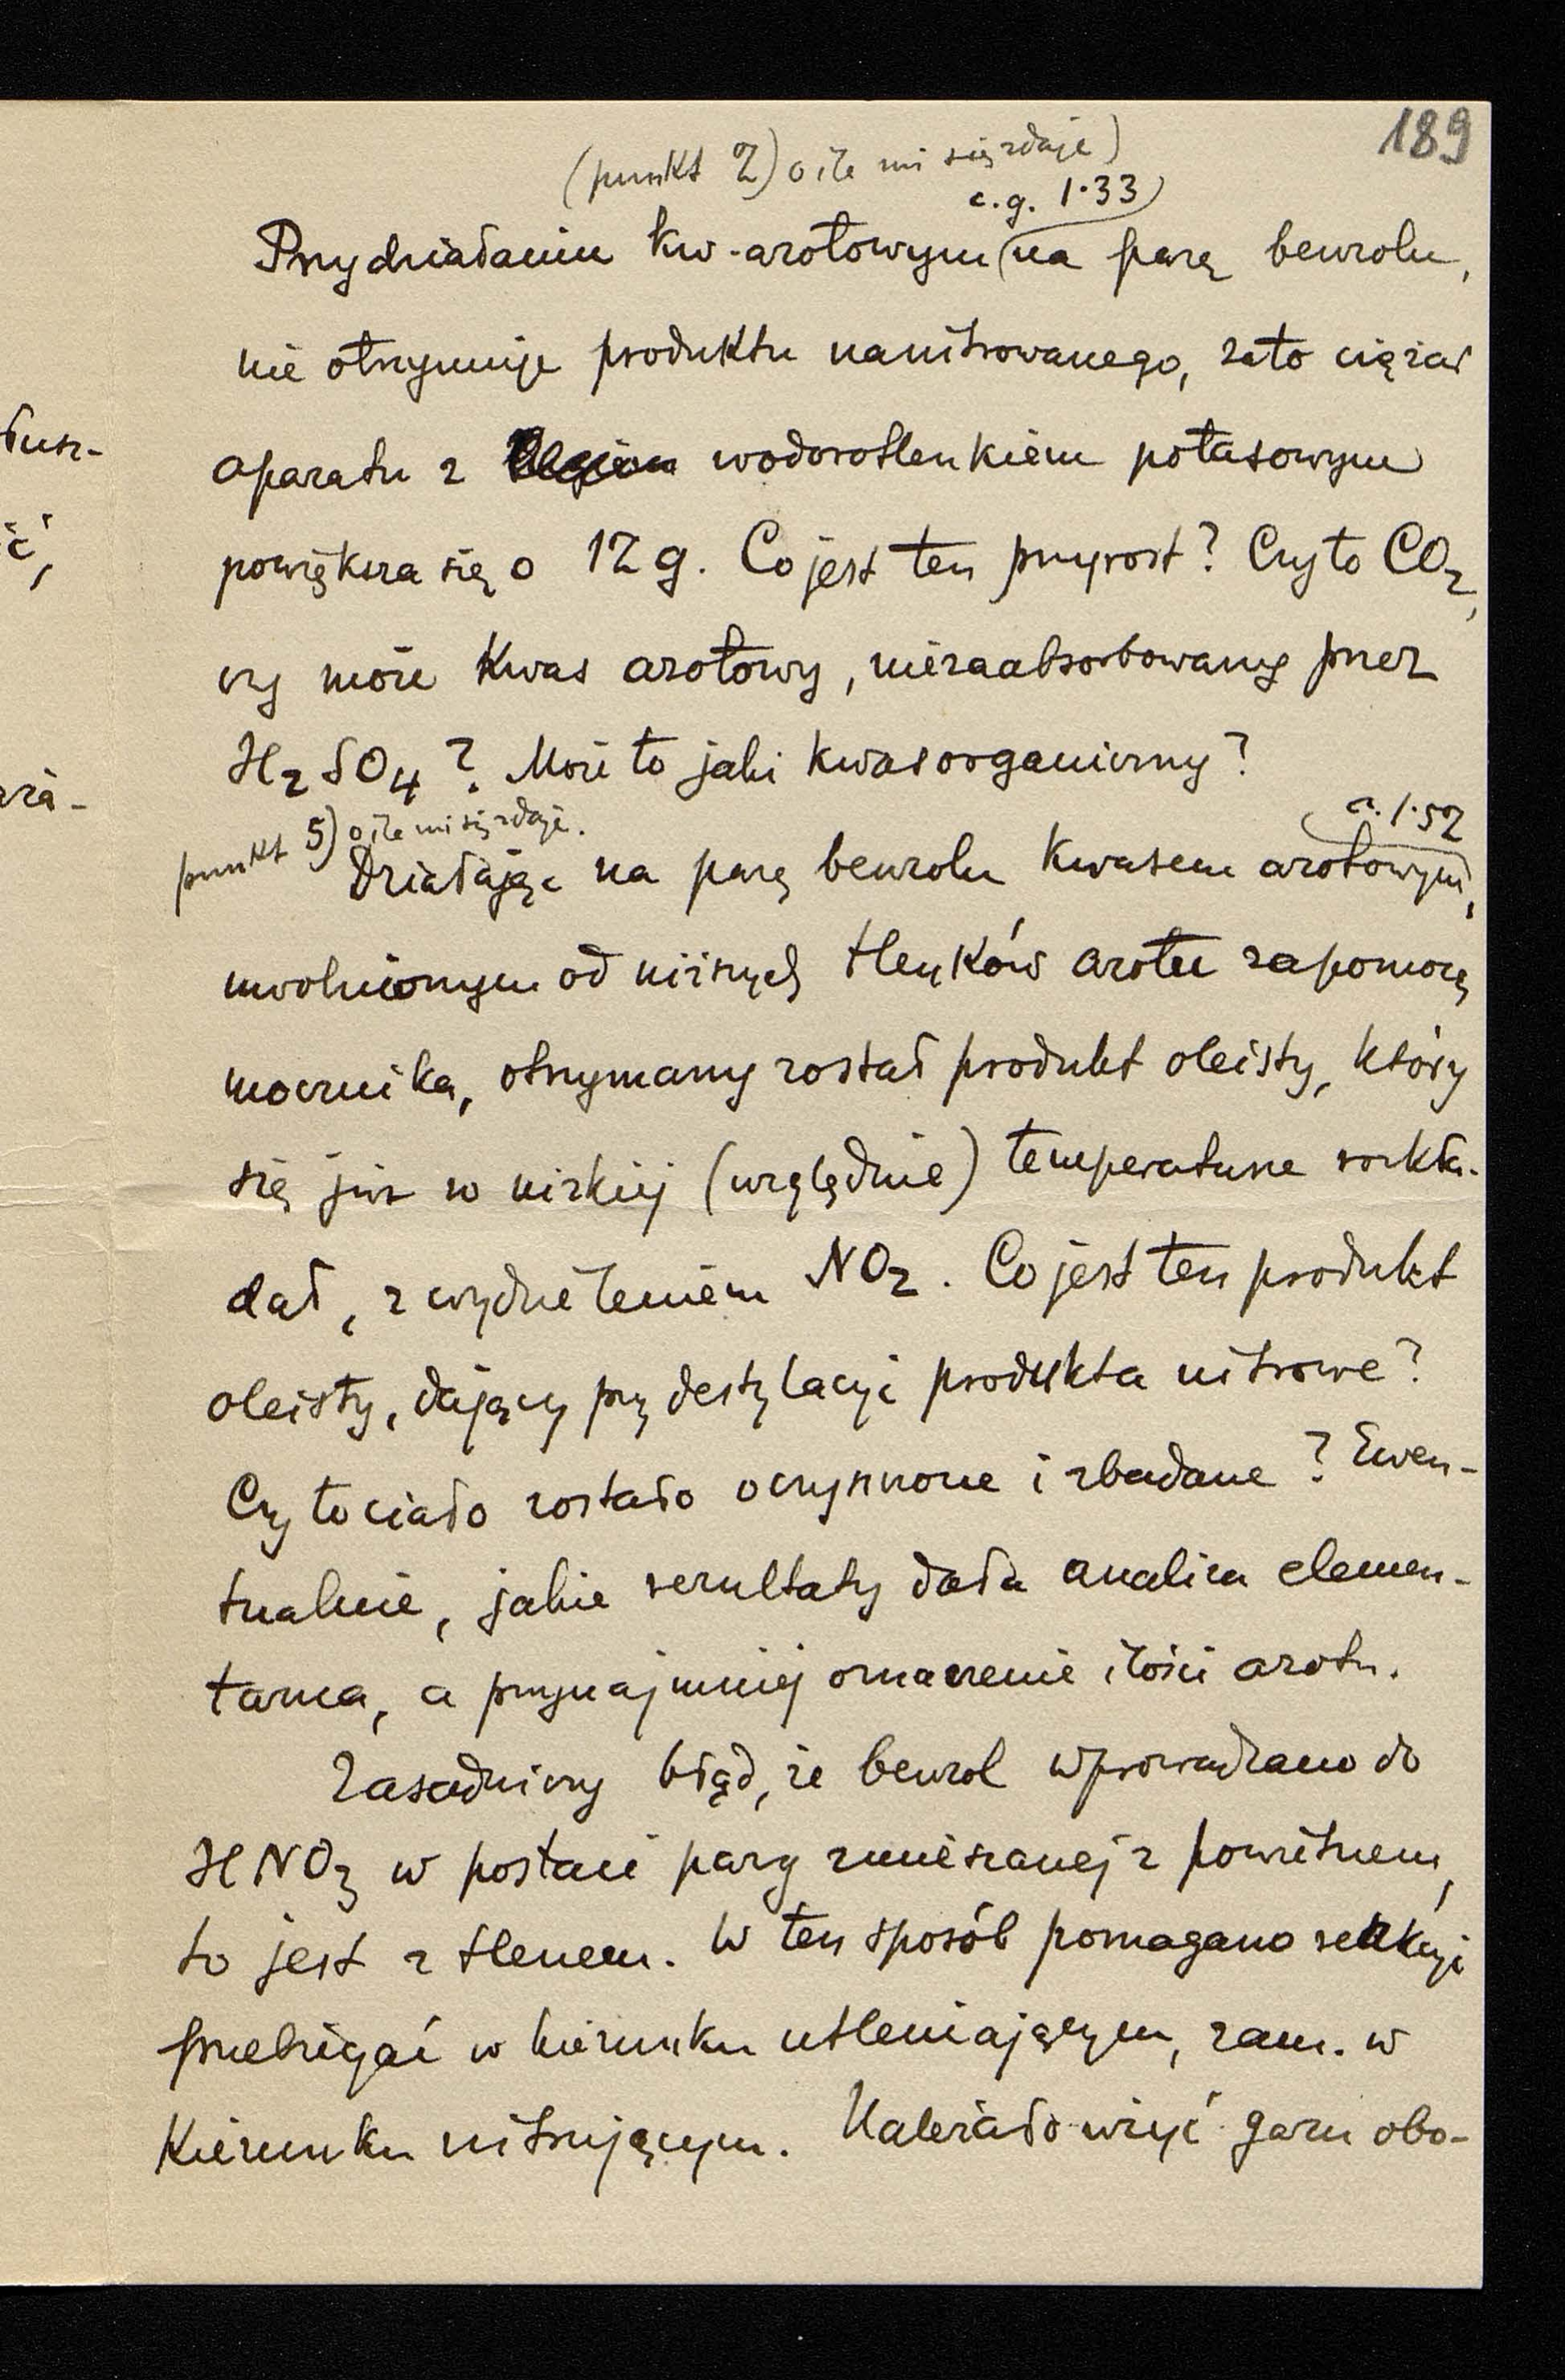 189
(punkt 2) o ile mi się zdaje)
c.g. 1.33)
Przy działaniu kw. azotowym (na parę benzolu,
nie otrzymuje produktu nanitrowanego, zato ciężar
aparatu z wodorotlenkiem potasowym
powiększa się o 12 g. Co jest ten przyrost? Czy to CO2,
czy może kwas azotowy, niezaabsorbowany przez
H2SO4? Może to jaki kwas organiczny?
punkt 5) o ile mi się zdaje.
c. 1.52
Działając na parę benzolu kwasem azotowym,
uwolnionym od niższych tlenków azotu zapomocą
mocznika, otrzymany został produkt oleisty, który
się już w nizkiej (względnie) temperaturze rozkła-
dał, z wydzieleniem NO2. Co jest ten produkt
oleisty, dający przy destylacji produkta nitrowe?
Czy to ciało zostało oczyszczone i zbadane? Ewen-
tualnie, jakie rezultaty dała analiza elemen-
tarna, a przynajmniej oznaczenie ilości azotu.
Zasadniczy błąd, że benzol wprowadzano do
HNO3 w postaci pary zmieszanej z powietrzem,
to jest z tlenem. W ten sposób pomagano reakcji
przebiegać w kierunku utleniającym, zam. w
kierunku nitrującym. Należało użyć gazu obo-
tusz-
ć,